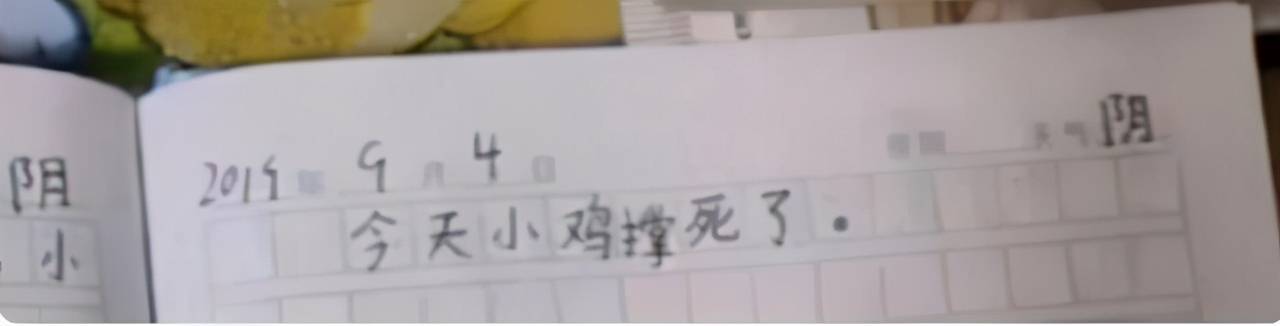 阴
小
2019年 9月 4日 天气阴
今天小鸡撑死了.